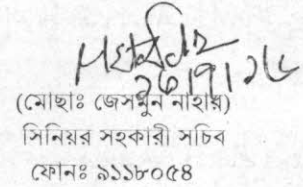 ২৬।৭।১৬
(মোছাঃ জেসমুন নাহার)
সিনিয়র সহকারী সচিব
ফোনঃ ৯১১৮০৫৪